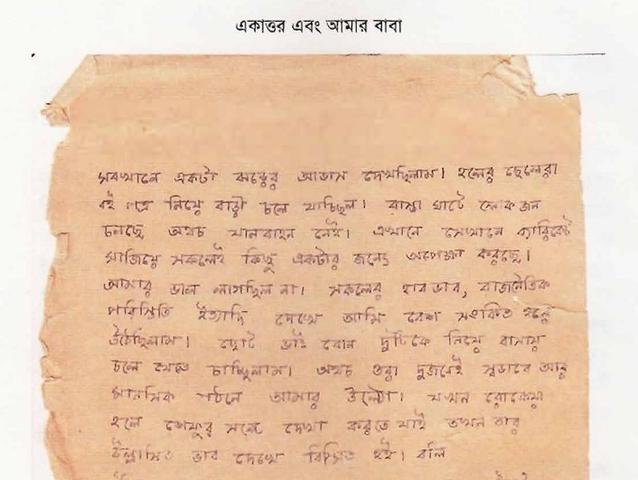 একাত্তর এবং আমার বাবা
সবখানে একটা ঝড়ের আভাস দেখছিলাম। হলের ছেলেরা
বই পত্র নিয়ে বাড়ী চলে যাচ্ছিল। রাস্তা ঘাটে লোক জন
চলছে অথচ যানবাহন নেই। এখানে সেখানে ব্যারিকেট
সাজিয়ে সকলেই কিছু একটার জন্যে অপেক্ষা করছে।
আমার ভাল লাগছিল না। সকলের হাব ভাব, রাজনৈতিক
পরিস্থিতি ইত্যাদি দেখে আমি বেশ শংকিত হয়ে
উঠেছিলাম। ছোট ভাই বোন দুটিকে নিয়ে বাসায়
চলে যেতে চাচ্ছিলাম। অথচ ওরা দুজনেই স্বভাবে আর
মানসিক গঠনে আমার উল্টো। যখন রোকেয়া
হলে শেফুর সঙ্গে দেখা করতে যাই তখন তার
উল্লাসিত ভাব দেখে বিস্মিত হই। বলি